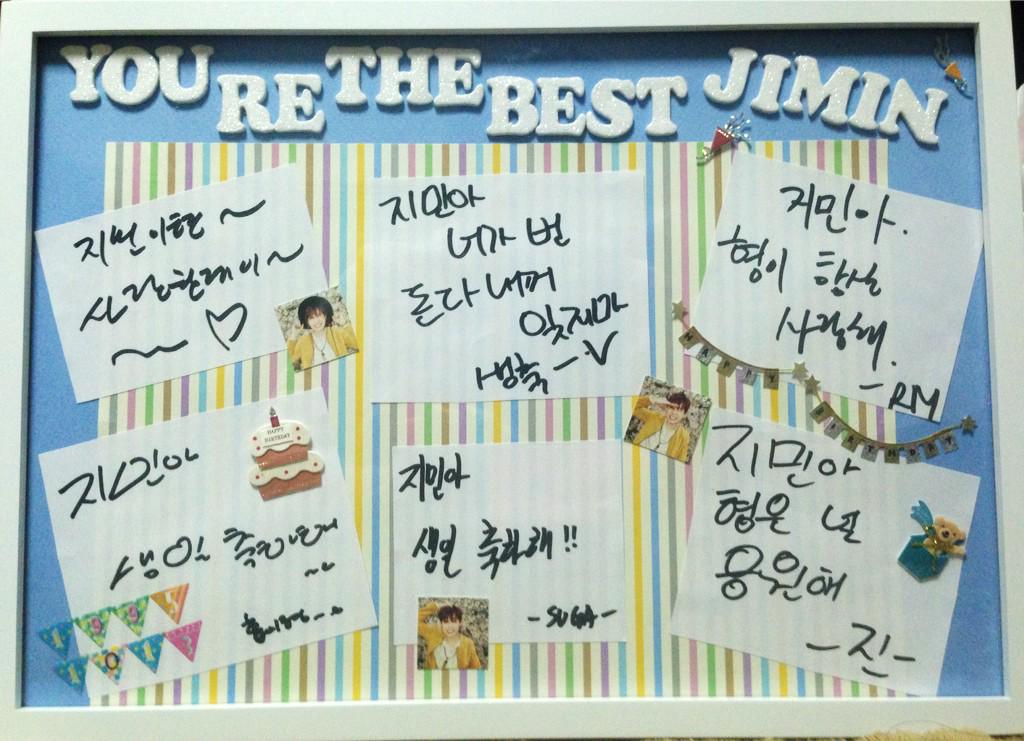 YOU RE THE BEST JIMIN
지민이형~
사랑한데이~
지민아
너가 번
돈 다 내꺼
잊지마
생축 -V
지민아.
형이 항상
사랑해.
- RM
HAPPY
BIRTHDAY
지민아
HAPPY
BIRTHDAY
생일 축하한데
~~
1995
1013
지민아
생일 축하해!!
- SUGA -
지민아
형은 널
응원해
- 진 -